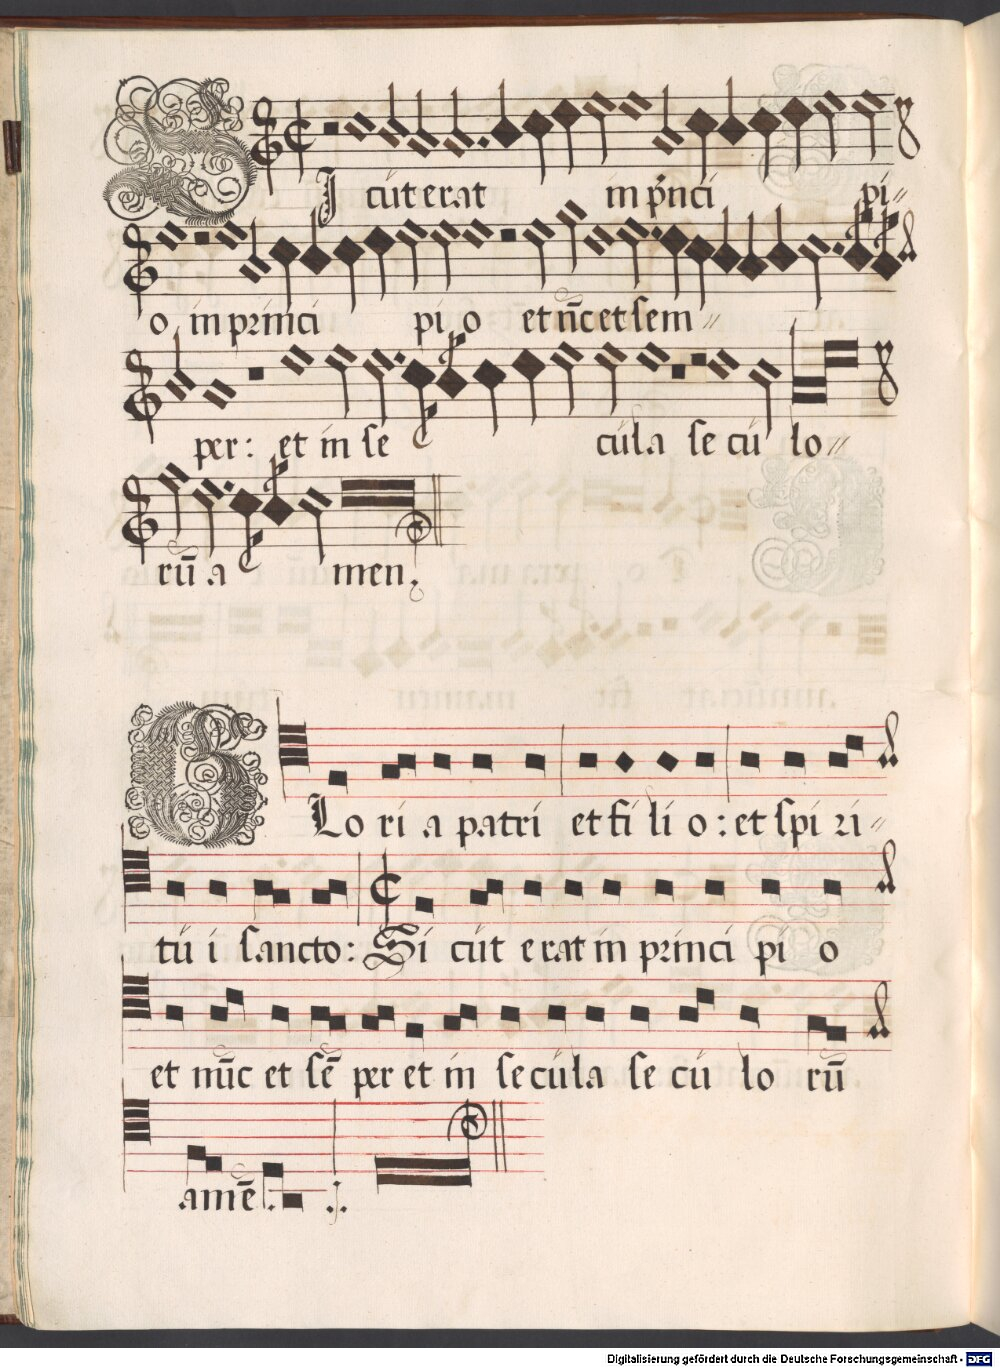 SIcut erat in p̄nci pi〃
o in princi pi o et nūc et sem〃
per: et in se cula se cu lo〃
rū a men.
GLo ri a patri et fi li o: et spi ri〃
tu i sancto: Si cut erat in princi pi o
et nūc et sē per et in secula se cu lo rū
amē.
Digitalisierung gefördert durch die Deutsche Forschungsgemeinschaft - DFG